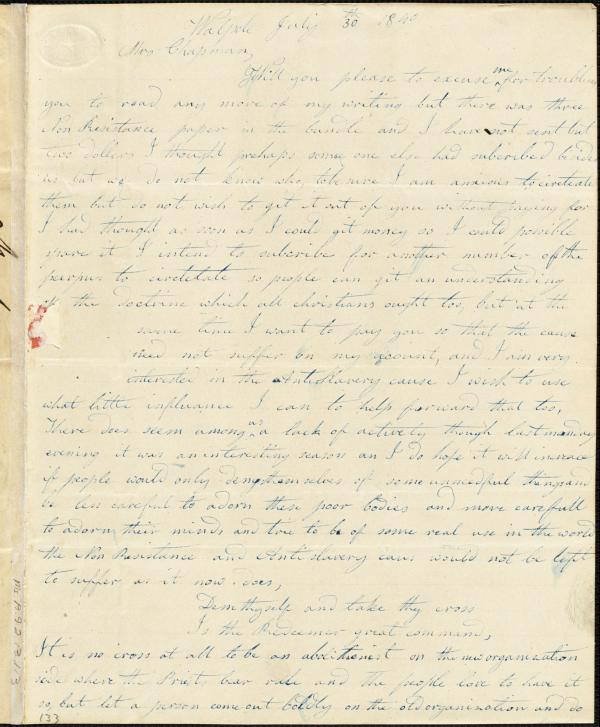 Walpole July 30th 1840
Mrs Chapman,
Will you please to excuse me for troubling
you to read any more of my writing but there was three
Non Resistance paper in the bundle and I have not sent but
two dollers I thought prehaps some one else had subcribed beside
us but we do not know who, tobesure I am anxious to circletate
them but do not wish to get it out of you without paying for
I had thought as soon as I could git money so I could possible
spare it I intend to subcribe for another number of the
peerpur to circletate so people can git an understanding
of the doctrine which all christians ought too, but at the
same time I want to pay you so that the cause
need not suffer on my account, and I am very
interested in the Antislavery cause I wish to use
what little influance I can to help forward that too,
There does seem among us a lack of activety though last monday
evening it was an interesting season an I do hope it will increase
if people would only deny themselves of some unneedful things and
be less careful to adorn these poor bodies and more carefull
to adorn their minds and trie to be of some real use in the world
the Non Resistance and Antislavery caus would not be left
to suffer as it now does,
Deni thyself and take thy cross
Is the Redeemer great command,
It is no cross at all to be an abolitionist on the new organization
side where the Priests bear rule and the people love to have it
so, but let a person come out boldly on the old organization and do
(33)